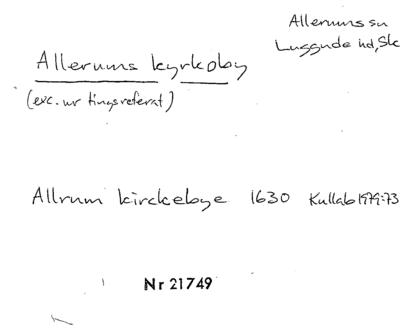 Allerums sn
Luggude hd, Sk
Allerums kyrkoby
(exc. ur tingsreferat)
Allrum kirckebye 1630 Kullab 1979:73
Nr 21749